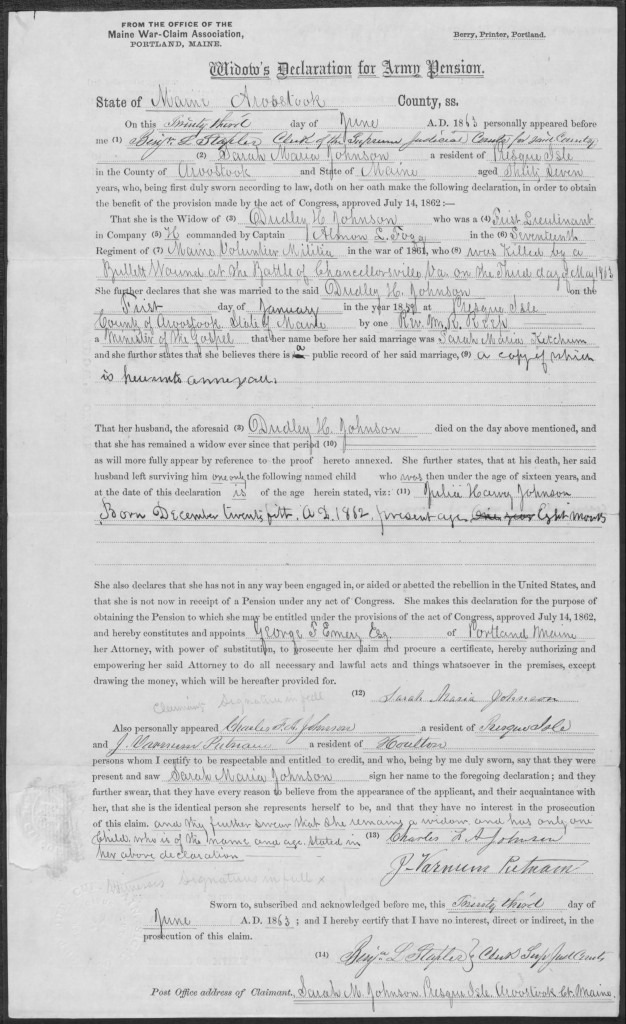 FROM THE OFFICE OF THE
Maine War-Claim Association,
PORTLAND, MAINE.
Berry, Printer, Portland.
Widow's Declaration for Army Pension.
State of Maine Aroostook County, ss.
On this Twenty third day of June A.D. 1863 personally appeared before
me (1) Benjn. L Staples Clerk of the Supreme Judicial Courts for said County
(2) Sarah Maria Johnson a resident of Presque Isle
in the County of Aroostook and State of Maine aged Thirty Seven
years, who, being first duly sworn according to law, doth on her oath make the following declaration, in order to obtain
the benefit of the provision made by the act of Congress, approved July 14, 1862:—
That she is the Widow of (3) Dudley H. Johnson who was a (4) First Lieutenant
in Company (5) H commanded by Captain Almon L. Fogg in the (6) Seventeenth
Regiment of (7) Maine Volunteer Militia in the war of 1861, who (8) was killed by a
Bullet Wound at the Battle of Chancellorsville Va. on the Third day of May 1863
She further declares that she was married to the said Dudley H. Johnson on the
First day of January in the year at Presque Isle
County of Aroostook State of Maine by one Rev. Wm. R. Keep
a Minister of the Gospel that her name before her said marriage was Sarah Maria Ketchum
and she further states that she believes there is a public record of her said marriage, (9) a copy of which
is hereunto annexed.
That her husband, the aforesaid (3) Dudley H. Johnson died on the day above mentioned, and
that she has remained a widow ever since that period (10)
as will more fully appear by reference to the proof hereto annexed. She further states, that at his death, her said
husband left surviving him one only the following named child who was then under the age of sixteen years, and
at the date of this declaration is of the age herein stated, viz: (11) Harry Johnson
Born December twenty fifth A.D. 1862. present age One year Eight months
She also declares that she has not in any way been engaged in, or aided or abetted the rebellion in the United States, and
that she is not now in receipt of a Pension under any act of Congress. She makes this declaration for the purpose of
obtaining the Pension to which she may be entitled under the provisions of the act of Congress, approved July 14, 1862,
and hereby constitutes and appoints George F Emery Esq. of Portland Maine
her Attorney, with power of substitution, to prosecute her claim and procure a certificate, hereby authorizing and
empowering her said Attorney to do all necessary and lawful acts and things whatsoever in the premises, except
drawing the money, which will be hereafter provided for.
Claimants Signature in full
(12) Sarah Maria Johnson
Also personally appeared Charles F. A. Johnson a resident of Presque Isle
and J. Varnum Putnam a resident of Houlton
persons whom I certify to be respectable and entitled to credit, and who, being by me duly sworn, say that they were
present and saw Sarah Maria Johnson sign her name to the foregoing declaration; and they
further swear, that they have every reason to believe from the appearance of the applicant, and their acquaintance with
her, that she is the identical person she represents herself to be, and that they have no interest in the prosecution
of this claim. and they further swear that she remains a widow and has only one
Child, who is of the name and age stated in
her above declaration
(13) Charles F A Johnson
J. Varnum Putnam
Witness Signature in full x
Sworn to, subscribed and acknowledged before me, this Twenty third day of
June A.D. 1863; and I hereby certify that I have no interest, direct or indirect, in the
prosecution of this claim.
(14) Benjn L Staples } Clerk Sup Jud Courts
Post Office address of Claimant, Sarah M. Johnson Presque Isle. Aroostook Ct. Maine.